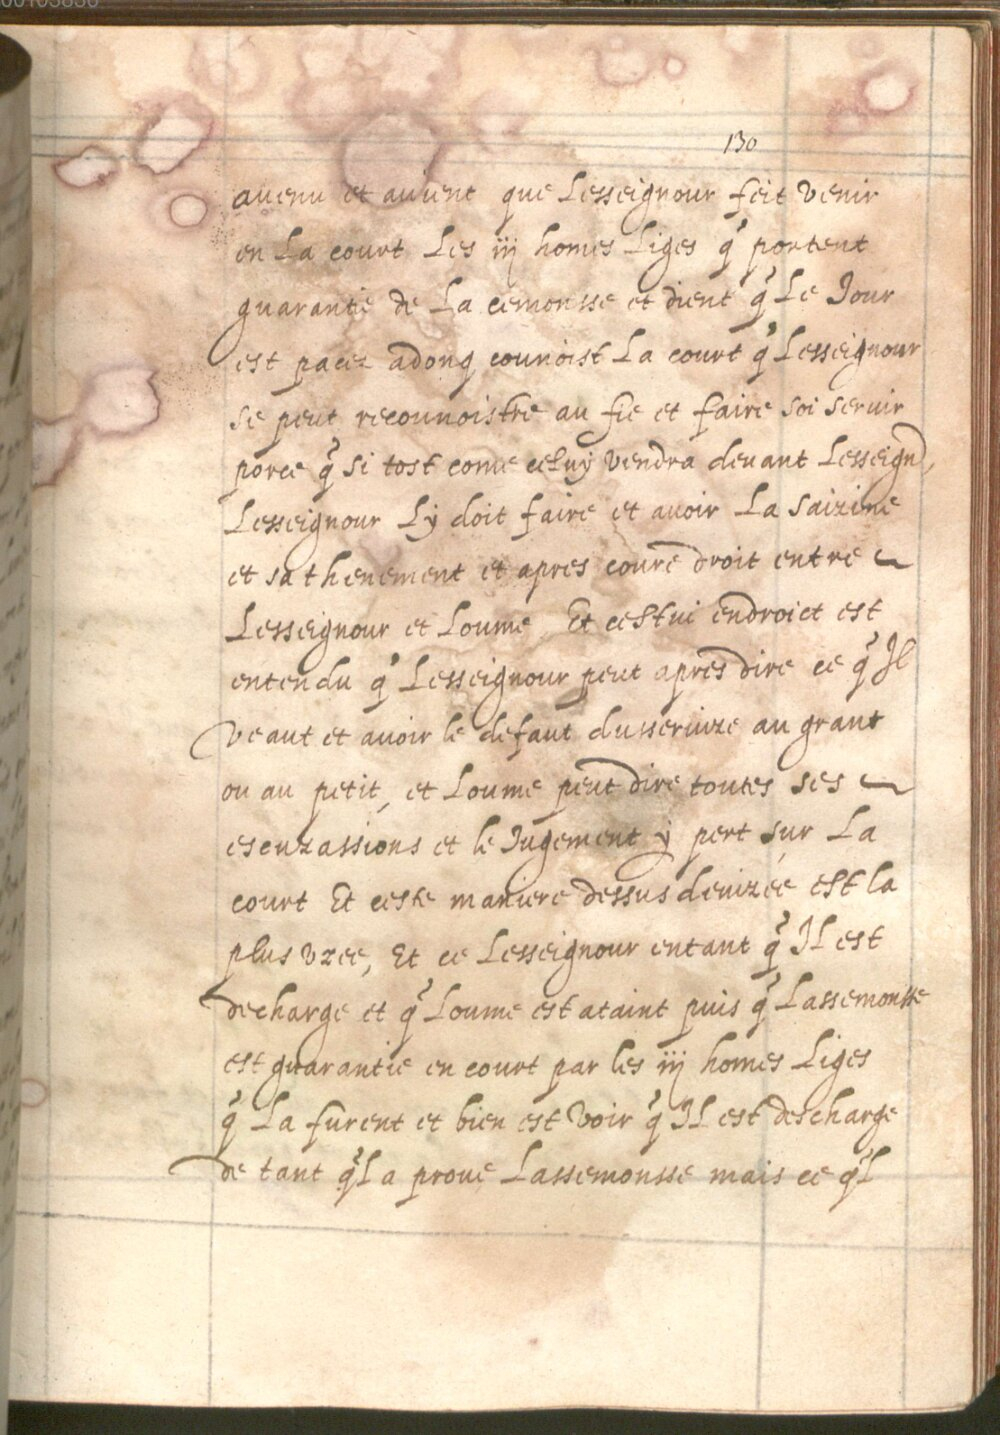 130
avenu et avient que Lesseignour feit venir
en La court Les iij homes Liges q̃ portent
guarantie de La cemonsse et dient q̃ Le Jour
est pacez adonq counoist La court q̃ Lesseignour
se peut recounoistre au fie et faire soi servir
porce q̃ si tost come celuy vendra devant Lesseign̄,
Lesseignour Ly doit faire et avoir La saizine
et sa thenement et apres coure droit entre
Lesseignour et Loume Et cestui endroict est
entendu q̃ Lesseignour peut apres dire ce q̃ Il
veaut et avoir le defaut dusservize au grant
ou au petit, et Loume peut dire toutes ses
escuzassions et le Jugement y pert sur La
court Et ceste maniere dessus devizée est la
plus vzee, Et ce Lesseignour entant q̃ IL est
decharge et q̃ Loume est ataint puis q̃ Lassemonsse
est guarantie en court par les iij homes Liges
q̃ La furent et bien est voir q̃ IL est descharge
de tant q̃ La prove Lassemonsse mais ce q̃L